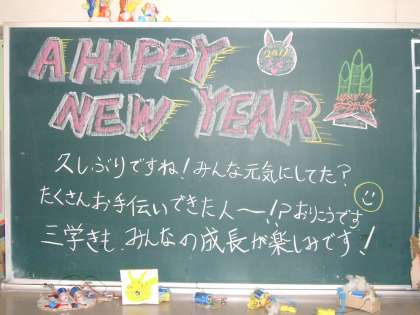 A HAPPY
2011
NEW YEAR
久しぶりですね！みんな元気にしてた？
たくさんお手伝いできた人ー！？おりこうです
三学きも、みんなの成長が楽しみです！